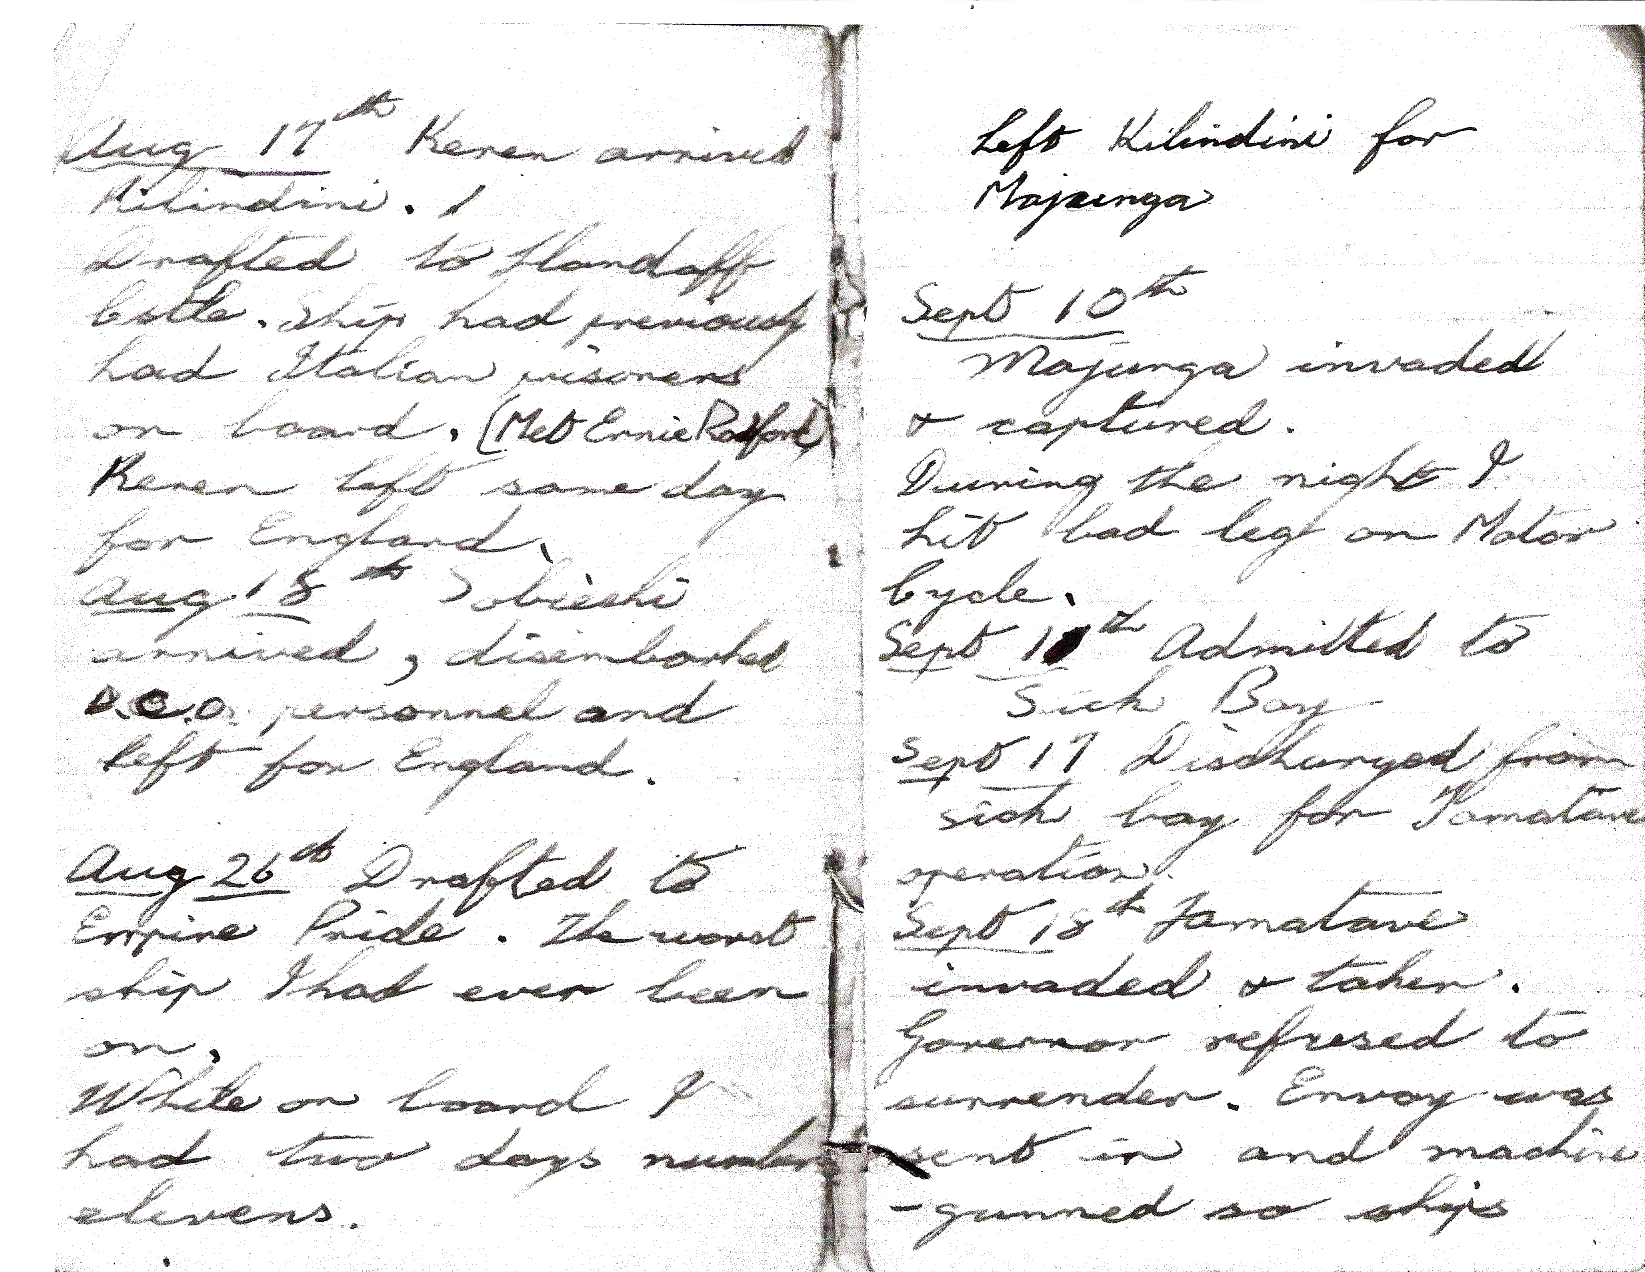 Aug 17th Keren arrived
Kilindini.
Drafted to Llandaff
Castle. Ship had previously
had Italian prisoners
on board. (Met Ernie Radford)
Keren left same day
for England.
Aug 18th Sobieski
arrived, disembarked
D.C.O. personnel and
left for England.
Aug 26th Drafted to
Empire Pride. The worst
ship I had ever been
on.
While on board I
had two days number
elevens.
Left Kilindini for
Majunga
Sept 10th
Majunga invaded
& captured.
During the night I
hit bad leg on Motor
Cycle.
Sept 11th Admitted to
Sick Bay
Sept 17 Discharged from
sick bay for Tamatave
operation.
Sept 18th Tamatave
invaded & taken.
Governor refused to
surrender. Envoy was
sent in and machine
-gunned so ships